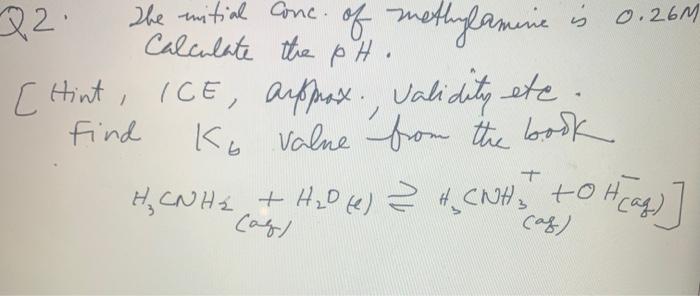 Q2. The initial conc. of methylamine is 0.26M
Calculate the pH.
[Hint, ICE, approx., validity etc.
Find Kb value from the book
H₃CNH₂ (aq) + H₂O (l) ⇌ H₃CNH₃⁺ (aq) + OH⁻ (aq)]